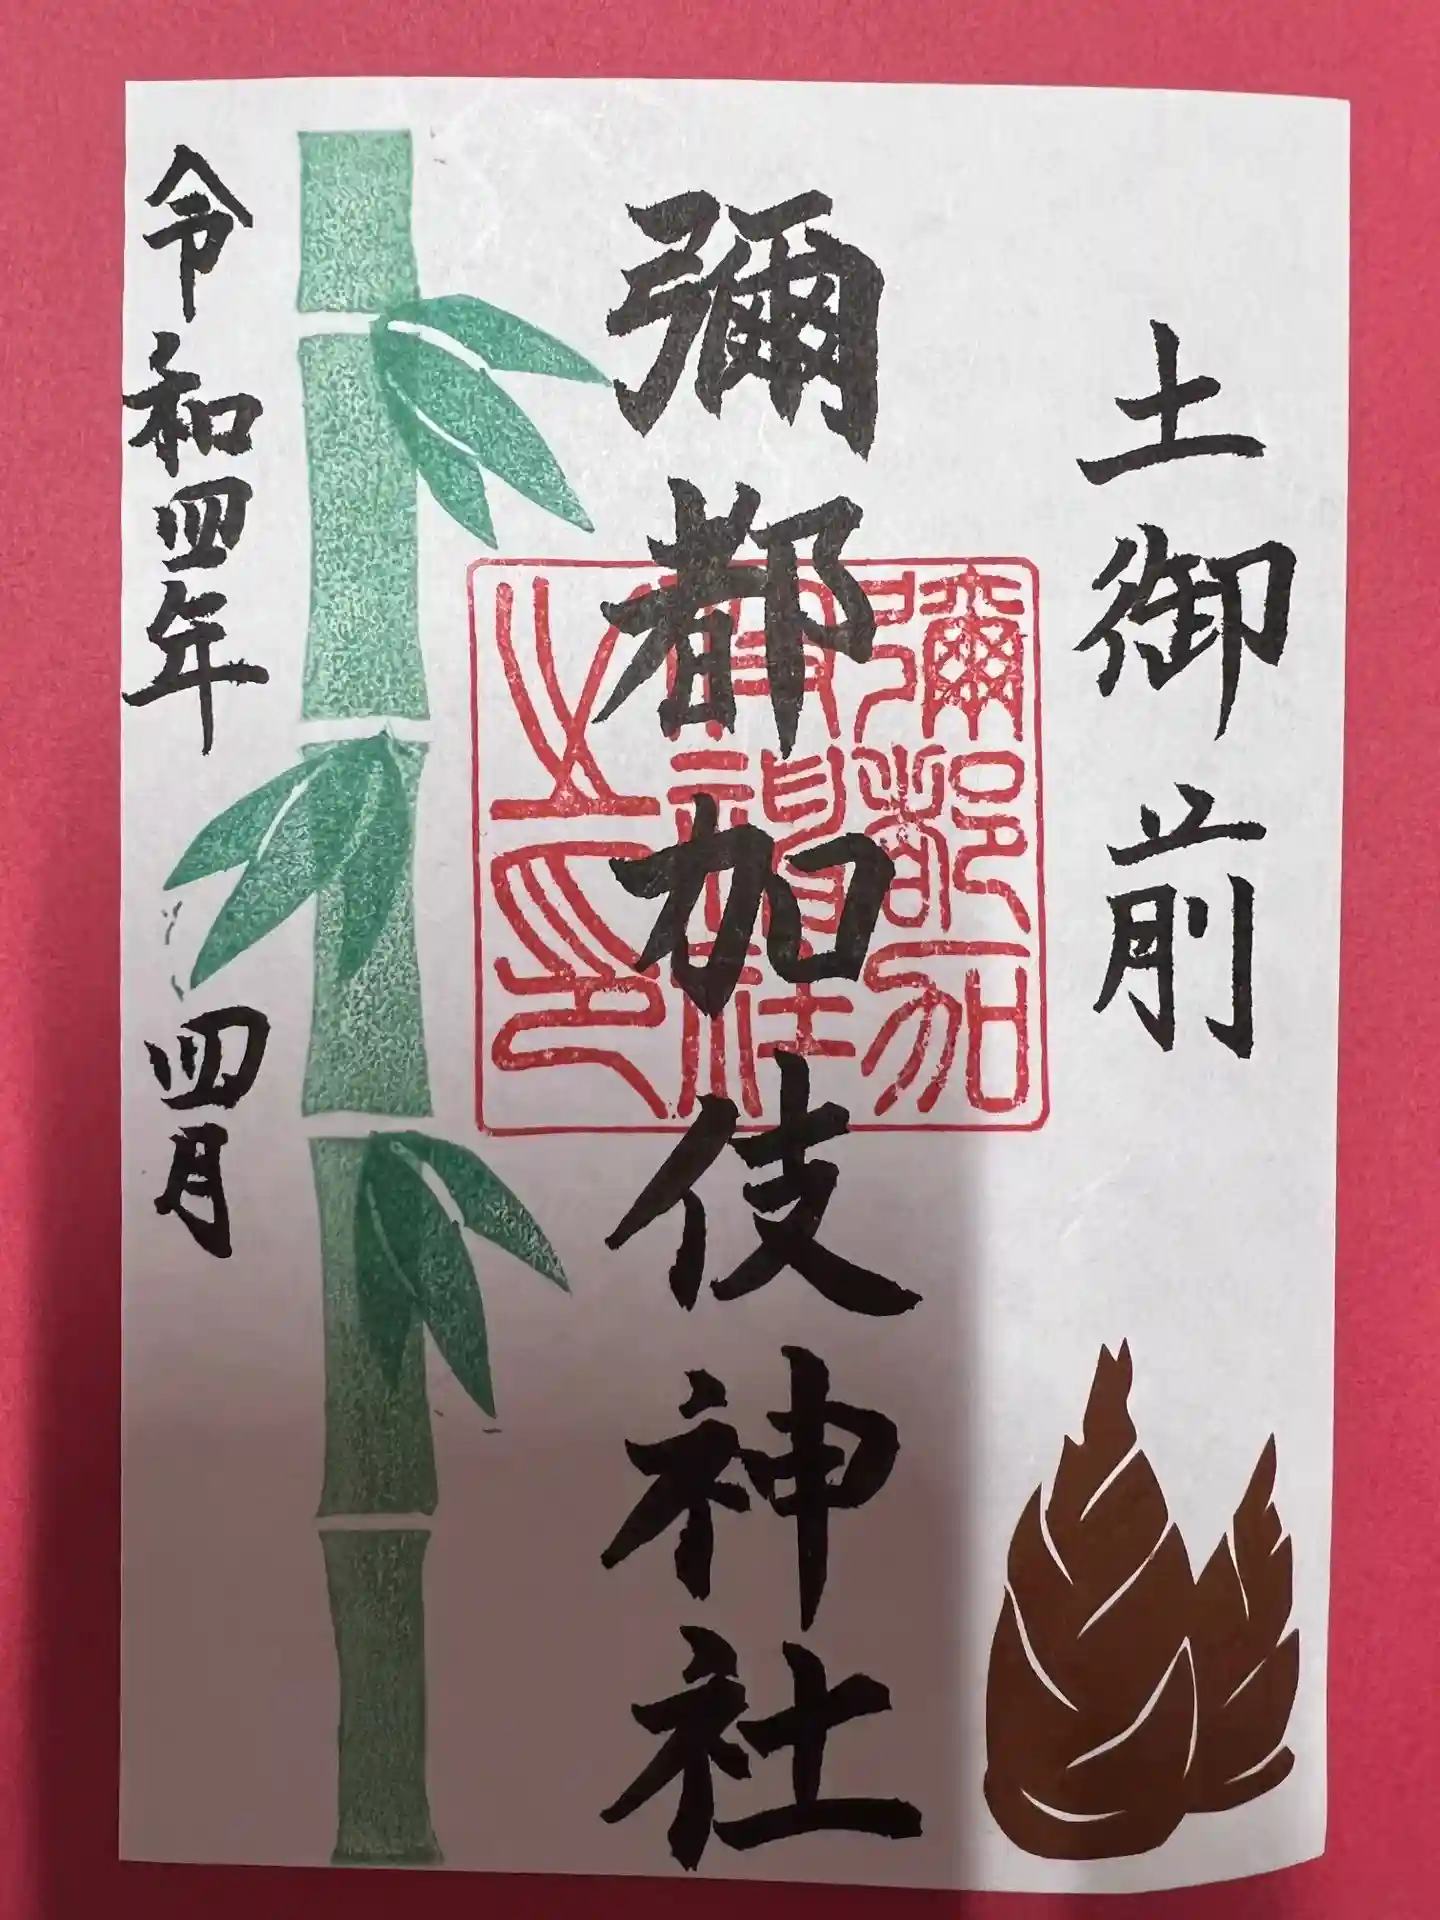 土御前
彌都加伎神社
彌都加
伎神社
之印
令和四年
四月